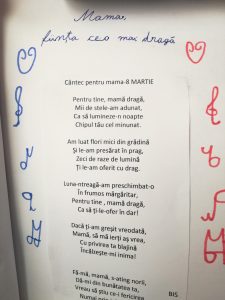 Mama,
ființa cea mai dragă
Cântec pentru mama-8 MARTIE
Pentru tine, mamă dragă,
Mii de stele-am adunat,
Ca să lumineze-n noapte
Chipul tău cel minunat.
Am luat flori mici din grădină
Și le-am presărat în prag,
Zeci de raze de lumină
Ți le-am oferit cu drag.
Luna-ntreagă-am preschimbat-o
În frumos mărgăritar,
Pentru tine, mamă dragă,
Ca să ți-le-ofer în dar!
Dacă ți-am greșit vreodată,
Mamă, să mă ierți aș vrea,
Cu privirea ta blajină
Încălzește-mi inima!
Fă-mă, mamă, s-ating norii,
Dă-mi din bunătatea ta,
Vreau să știu ce-i fericirea BIS